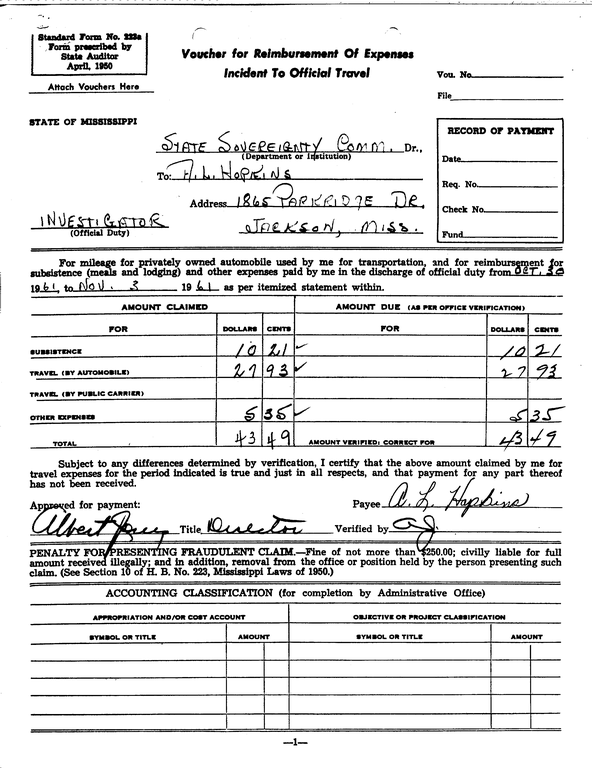 Standard Form No. 223a
Form prescribed by
State Auditor
April, 1950
Attach Vouchers Here
Voucher for Reimbursement Of Expenses
Incident To Official Travel
Vou. No.
File
STATE OF MISSISSIPPI
STATE SOVEREIGNTY COMM. Dr.,
(Department or Institution)
To: A. L. HOPKINS
Address 1865 PARKRIDGE DR.
INVESTIGATOR JACKSON, MISS.
(Official Duty)
RECORD OF PAYMENT
Date
Req. No.
Check No.
Fund
For mileage for privately owned automobile used by me for transportation, and for reimbursement for
subsistence (meals and lodging) and other expenses paid by me in the discharge of official duty from OCT. 30
1961, to NOV. 3 1961 as per itemized statement within.
AMOUNT CLAIMED AMOUNT DUE (AS PER OFFICE VERIFICATION)
FOR DOLLARS CENTS FOR DOLLARS CENTS
SUBSISTENCE 10 21 ✓ 10 21
TRAVEL (BY AUTOMOBILE) 27 93 ✓ 27 93
TRAVEL (BY PUBLIC CARRIER)
OTHER EXPENSES 5 35 ✓ 5 35
TOTAL 43 49 AMOUNT VERIFIED: CORRECT FOR 43 49
Subject to any differences determined by verification, I certify that the above amount claimed by me for
travel expenses for the period indicated is true and just in all respects, and that payment for any part thereof
has not been received.
Approved for payment: Payee A. L. Hopkins
Albert Jones Title Director Verified by AJ
PENALTY FOR PRESENTING FRAUDULENT CLAIM.—Fine of not more than $250.00; civilly liable for full
amount received illegally; and in addition, removal from the office or position held by the person presenting such
claim. (See Section 10 of H. B. No. 223, Mississippi Laws of 1950.)
ACCOUNTING CLASSIFICATION (for completion by Administrative Office)
APPROPRIATION AND/OR COST ACCOUNT OBJECTIVE OR PROJECT CLASSIFICATION
SYMBOL OR TITLE AMOUNT SYMBOL OR TITLE AMOUNT
—1—